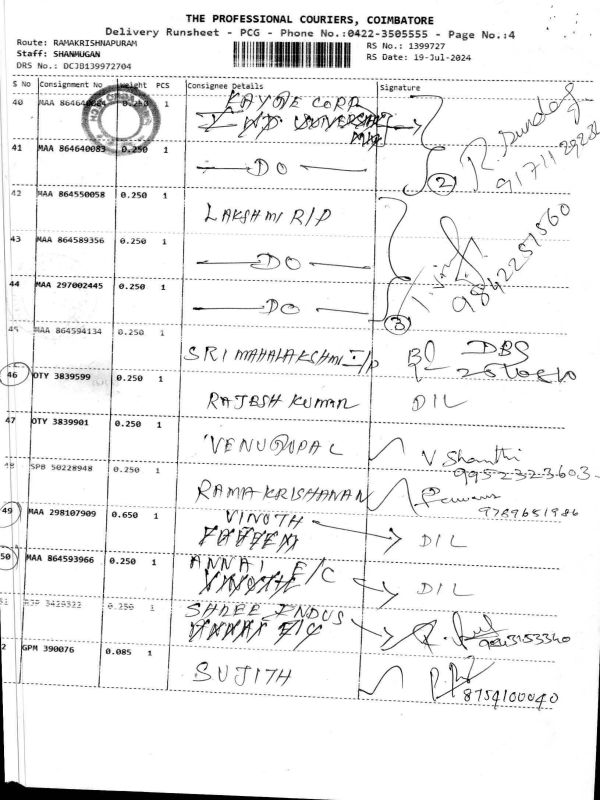 THE PROFESSIONAL COURIERS, COIMBATORE
Delivery Runsheet - PCG - Phone No.:0422-3505555 - Page No.:4
Route: RAMAKRISHNAPURAM
RS No.: 1399727
Staff: SHANMUGAN
RS Date: 19-Jul-2024
DRS No.: DCJB139972704
S No Consignment No Weight PCS Consignee Details Signature
40 MAA 864640084 0.250 1 KAYJEE CORP
41 MAA 864640083 0.250 1 DO
2
42 MAA 864550058 0.250 1 LAKSHMI R/P
43 MAA 864589356 0.250 1 DO
9842257560
44 MAA 297002445 0.250 1 DO
3
45 MAA 864594134 0.250 1 SRI MAHALAKSHMI I/P DBS
46 OTY 3839599 0.250 1 RAJESH KUMAR DIL
47 OTY 3839901 0.250 1 VENUGOPAL V Shanthi
9952323603
48 SPB 50228948 0.250 1 RAMAKRISHANAN
9789651986
49 MAA 298107909 0.650 1 VINOTH DIL
50 MAA 864593966 0.250 1 ANNAI E/C DIL
0.250 1 SHREE INDUS
GPM 390076 0.085 1 SUJITH
8754100040